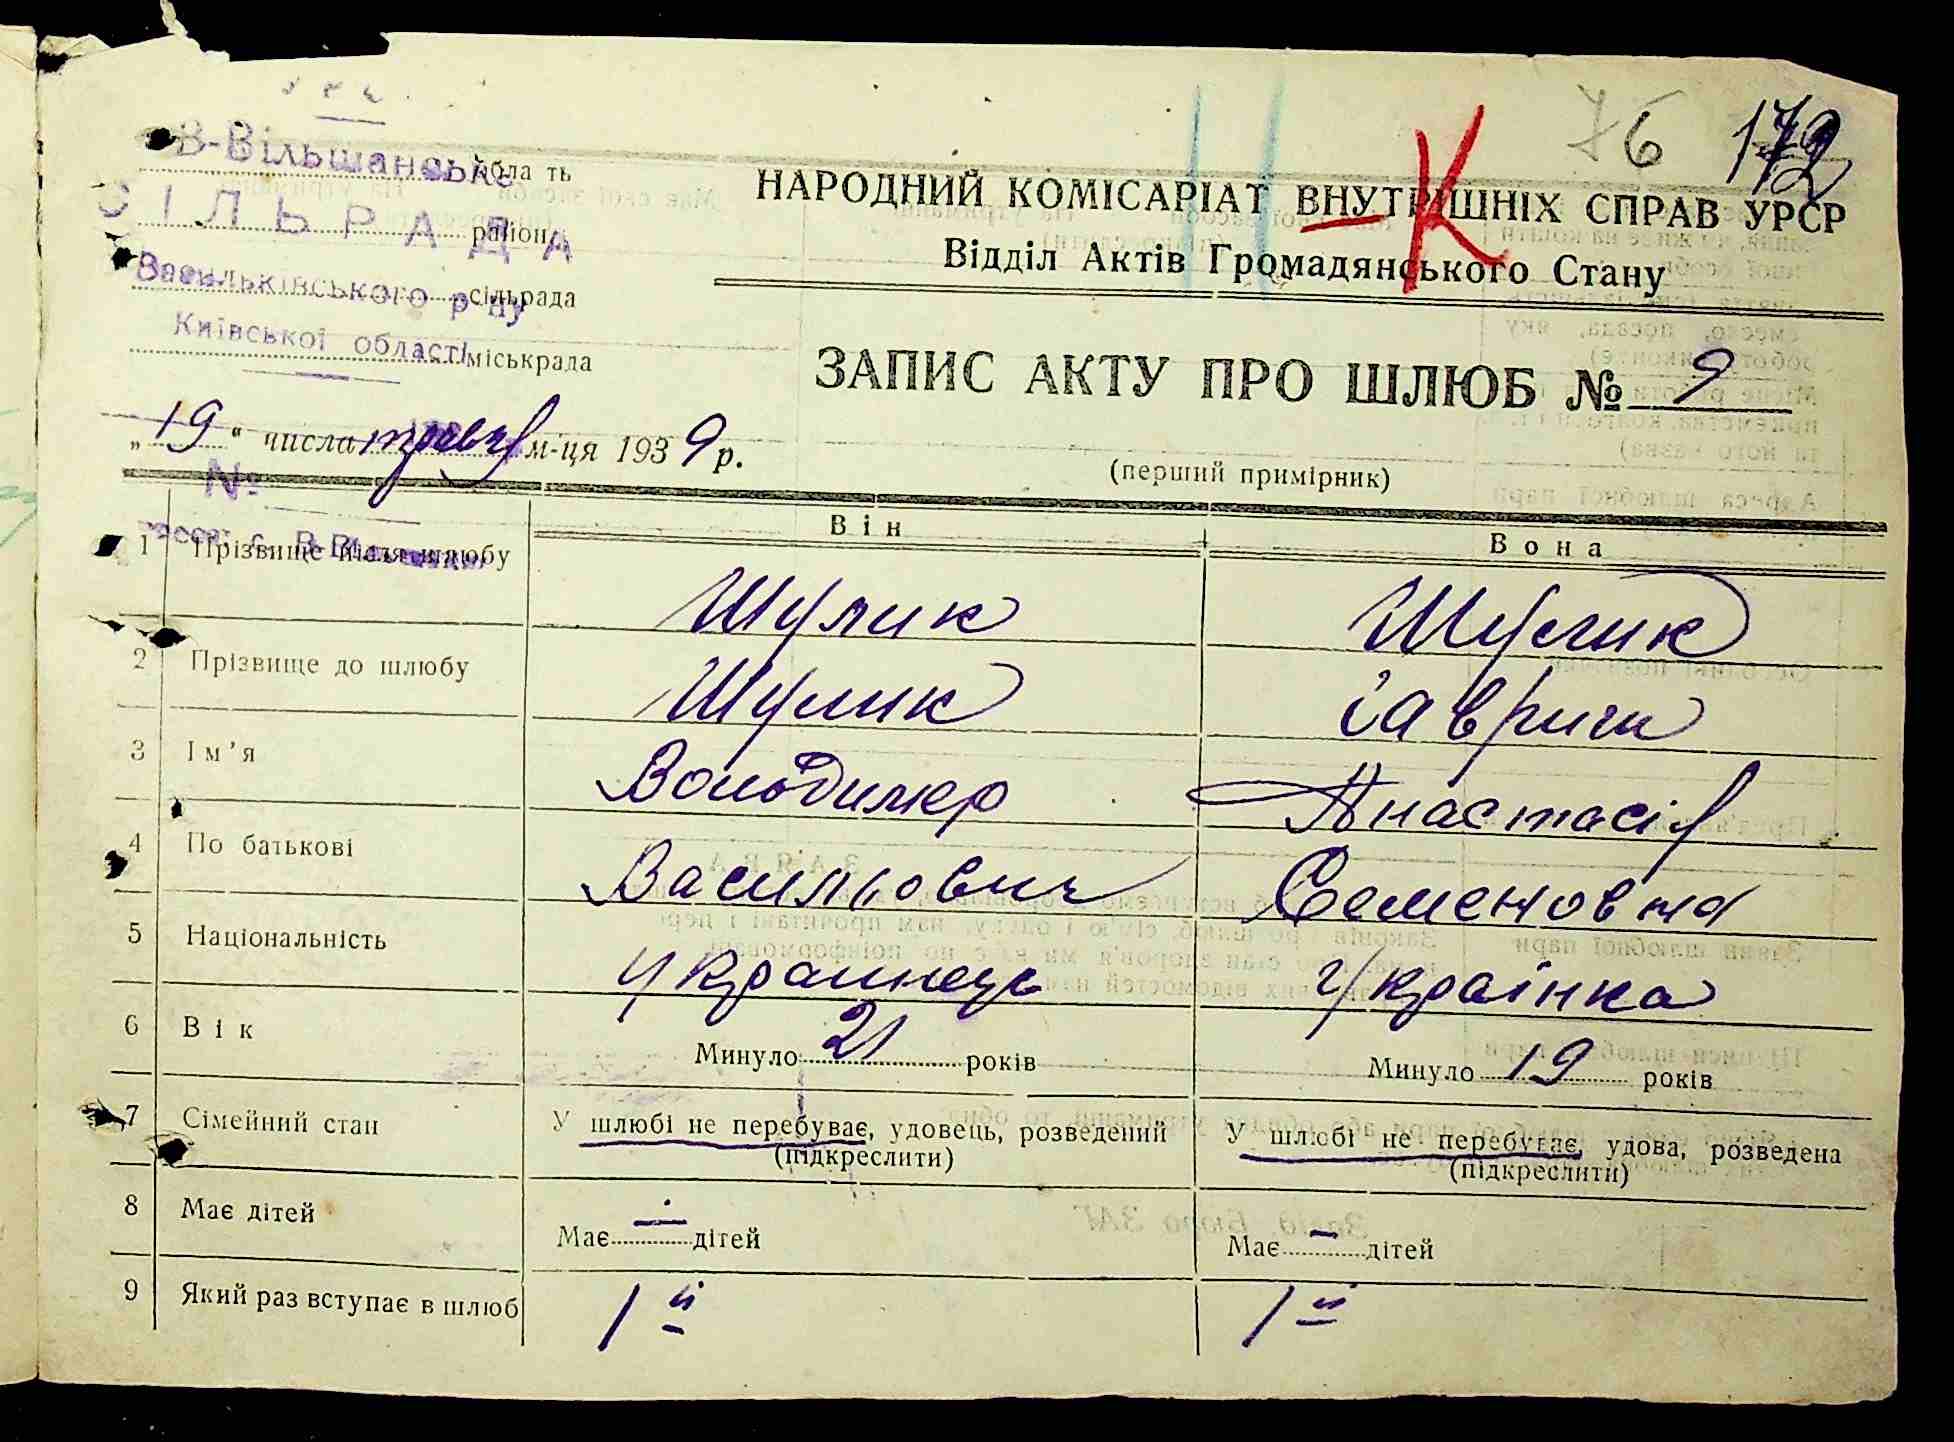 76 172
В-Вільшанське
СІЛЬРАДА
Васильківського р-ну
Київської області
обла ть
район
сільрада
міськрада
Н-К
НАРОДНИЙ КОМІСАРІАТ ВНУТРІШНІХ СПРАВ УРСР
Відділ Актів Громадянського Стану
ЗАПИС АКТУ ПРО ШЛЮБ № 9
„19“ числа травня м-ця 1939 р.
№
(перший примірник)
Він Вона
1 Прізвище після шлюбу Шулик Шулик
2 Прізвище до шлюбу Шулик Гавриш
3 Ім’я Володимер Анастасія
4 По батькові Василіович Семеновна
5 Національність Українець Українка
6 Вік Минуло 21 років Минуло 19 років
7 Сімейний стан У шлюбі не перебуває, удовець, розведений У шлюбі не перебуває, удова, розведена
(підкреслити) (підкреслити)
8 Має дітей Має — дітей Має — дітей
9 Який раз вступає в шлюб 1й 1й